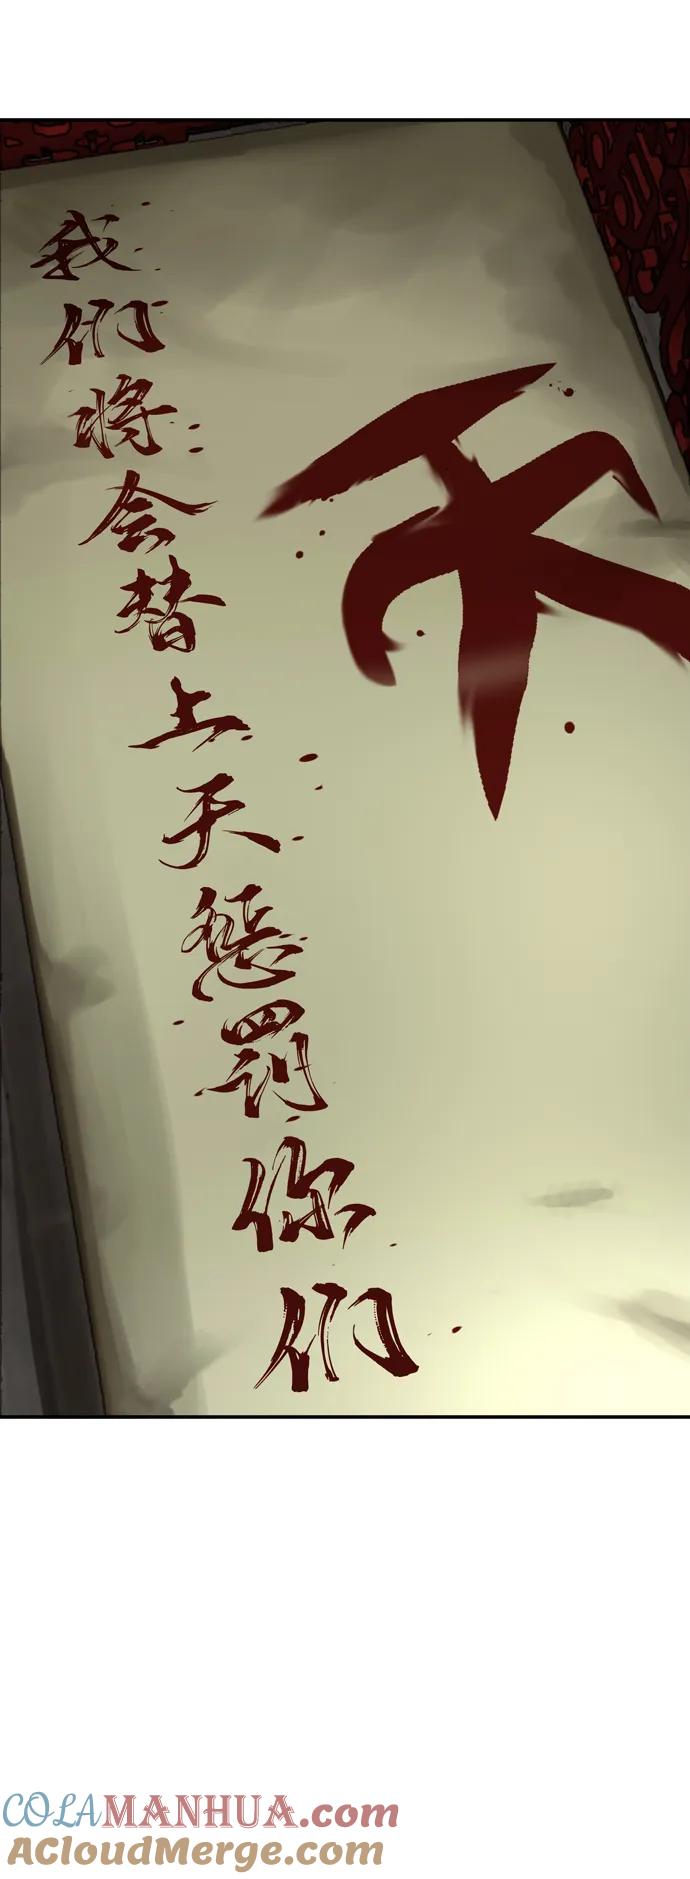 天
我们将会替上天惩罚你们
COLAMANHUA.com
ACloudMerge.com